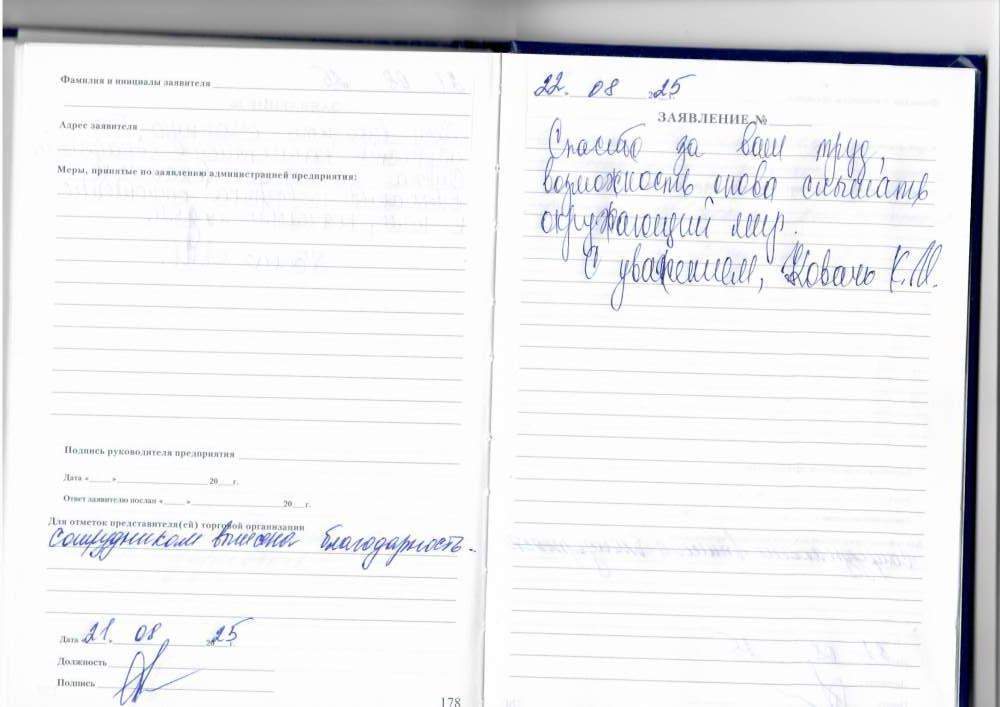 Фамилия и инициалы заявителя
Адрес заявителя
Меры, принятые по заявлению администрацией предприятия:
Подпись руководителя предприятия
Дата «_____» 20__ г.
Ответ заявителю послан «_____» 20__ г.
Для отметок представителя(ей) торговой организации
Сотрудникам вынесена благодарность.
Дата 21. 08 2025 г.
Должность
Подпись
178
22. 08 2025 г.
ЗАЯВЛЕНИЕ №
Спасибо за ваш труд,
возможность снова слышать
окружающий мир.
С уважением, Ковачь К.М.